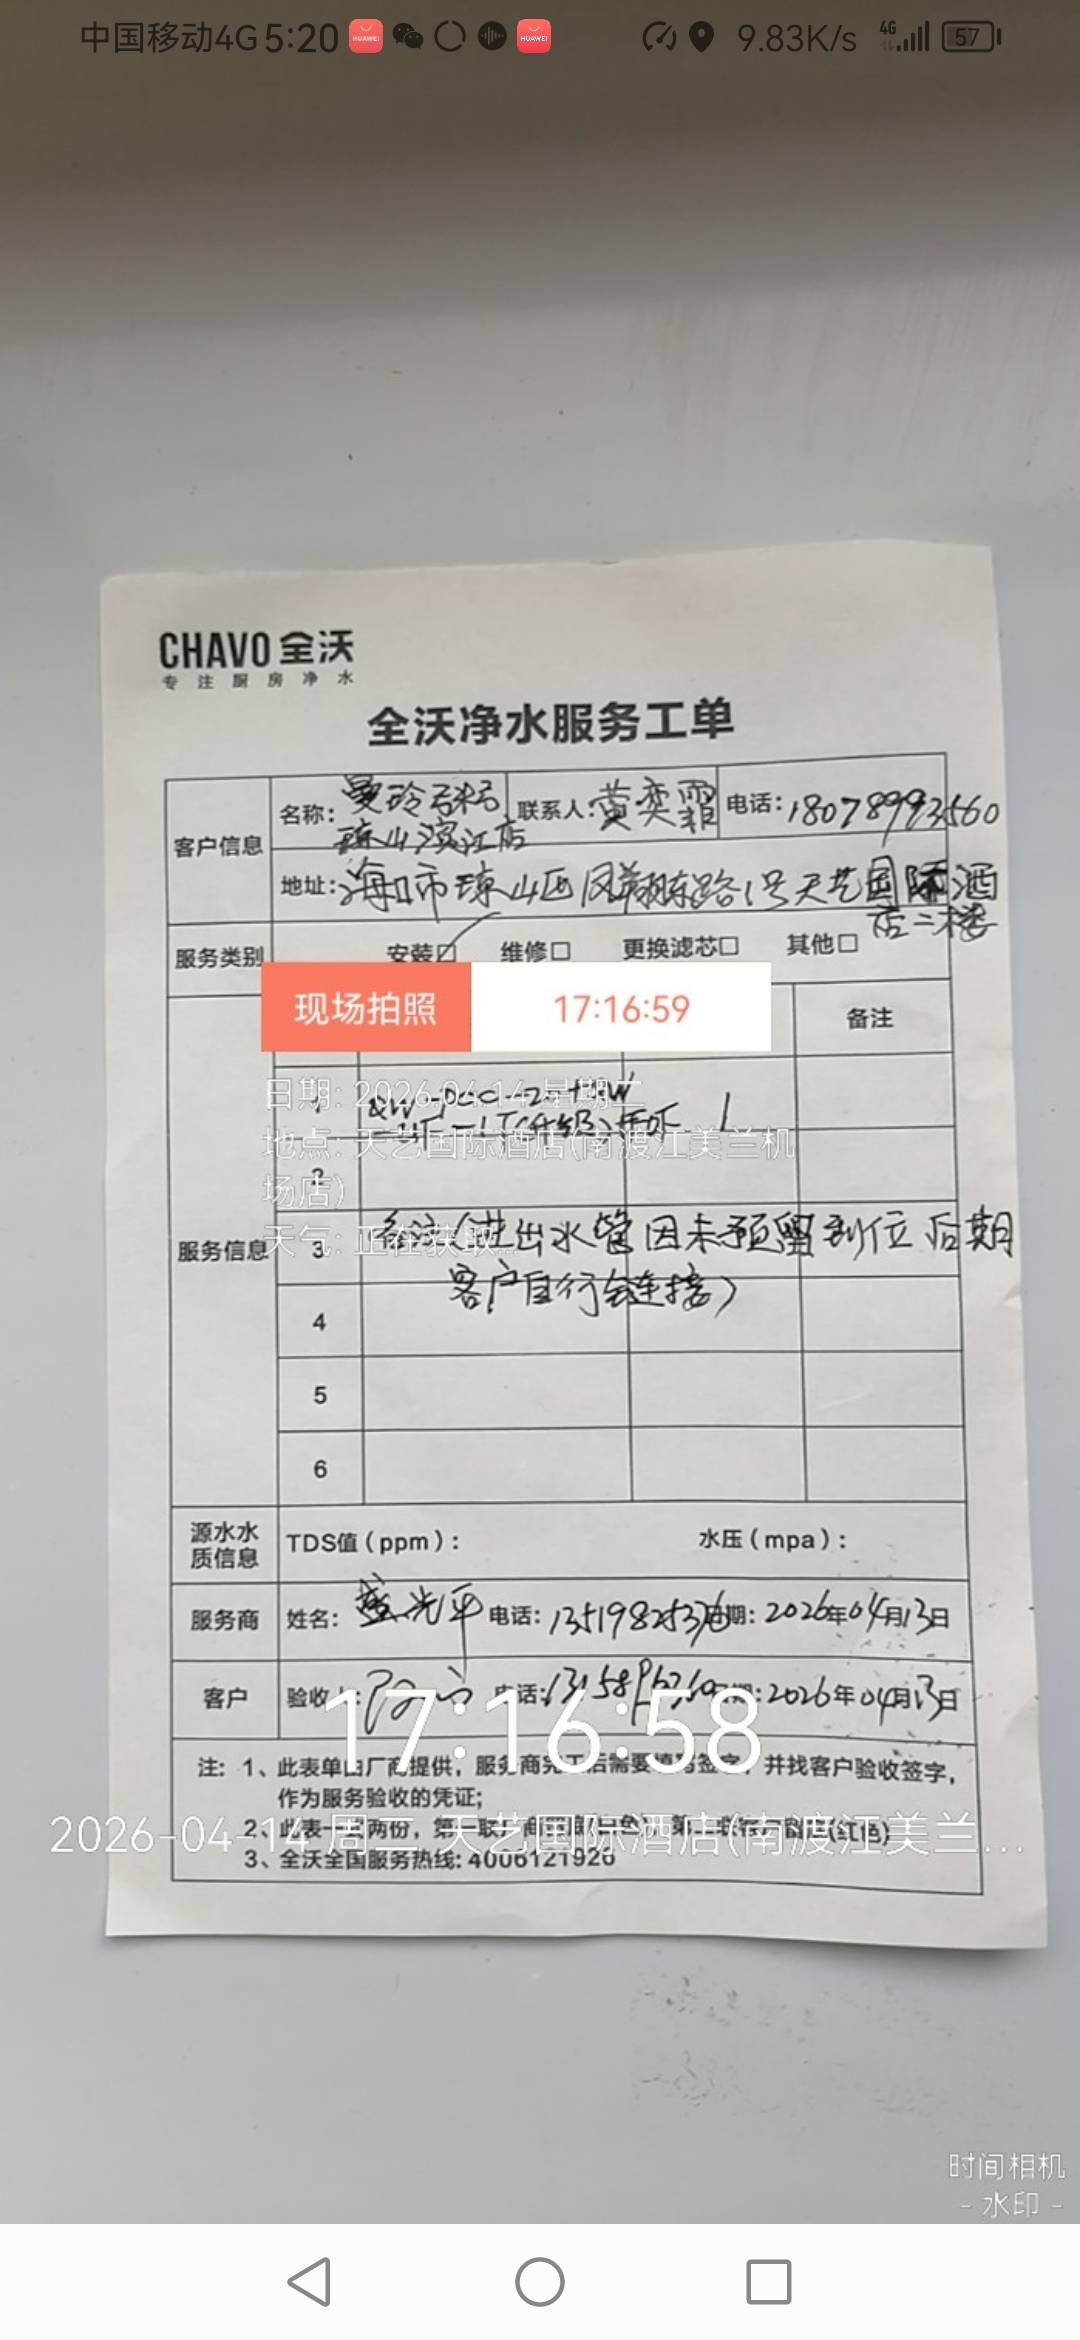 中国移动4G 5:20 HUAWEI HUAWEI 9.83K/s 4G 57
CHAVO 全沃
专注厨房净水
全沃净水服务工单
客户信息 名称: 曼玲 联系人: 黄奕霜 电话: 18078993560
琼山滨江店
地址: 海口市琼山区凤翔东路1号天艺国际酒
店二楼
服务类别 安装☑ 维修□ 更换滤芯□ 其他□
现场拍照 17:16:59
备注
日期: 2026.04.14 星期二
1 1
地点: 天艺国际酒店(南渡江美兰机
场店)
2
天气: 正在获取...
服务信息 3 备注(进出水管因未预留到位后期
客户自行连接)
4
5
6
源水水质信息 TDS值(ppm): 水压(mpa):
服务商 姓名: 光平 电话: 日期: 2026年04月13日
客户 验收人: 电话: 日期: 2026年04月13日
17:16:58
注: 1、此表单由厂商提供,服务商完工后需要填写签字,并找客户验收签字,
作为服务验收的凭证;
2、此表一式两份,第一联 (红色)
2026-04-14 周二 天艺国际酒店(南渡江美兰...
3、全沃全国服务热线: 4006121926
时间相机
- 水印 -